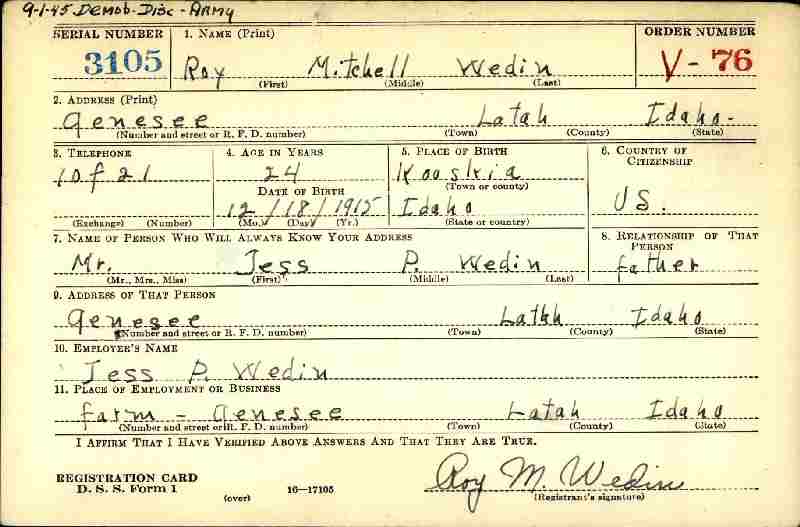 9-1-45 Demob-Disc-ARMY
SERIAL NUMBER 1. NAME (Print) ORDER NUMBER
3105 Roy Mitchell Wedin V-76
(First) (Middle) (Last)
2. ADDRESS (Print)
Genesee Latah Idaho-
(Number and street or R. F. D. number) (Town) (County) (State)
3. TELEPHONE 4. AGE IN YEARS 5. PLACE OF BIRTH 6. COUNTRY OF CITIZENSHIP
10 f 21 24 Kooskia
(Town or county)
DATE OF BIRTH
12/18/1915 Idaho US.
(Exchange) (Number) (Mo.) (Day) (Yr.) (State or country)
7. NAME OF PERSON WHO WILL ALWAYS KNOW YOUR ADDRESS 8. RELATIONSHIP OF THAT PERSON
Mr. Jess P. Wedin father
(Mr., Mrs., Miss) (First) (Middle) (Last)
9. ADDRESS OF THAT PERSON
Genesee Latah Idaho
(Number and street or R. F. D. number) (Town) (County) (State)
10. EMPLOYER'S NAME
Jess P. Wedin
11. PLACE OF EMPLOYMENT OR BUSINESS
farm - Genesee Latah Idaho
(Number and street or R. F. D. number) (Town) (County) (State)
I AFFIRM THAT I HAVE VERIFIED ABOVE ANSWERS AND THAT THEY ARE TRUE.
REGISTRATION CARD
D. S. S. Form 1 (over) 16-17105
Roy M. Wedin
(Registrant's signature)